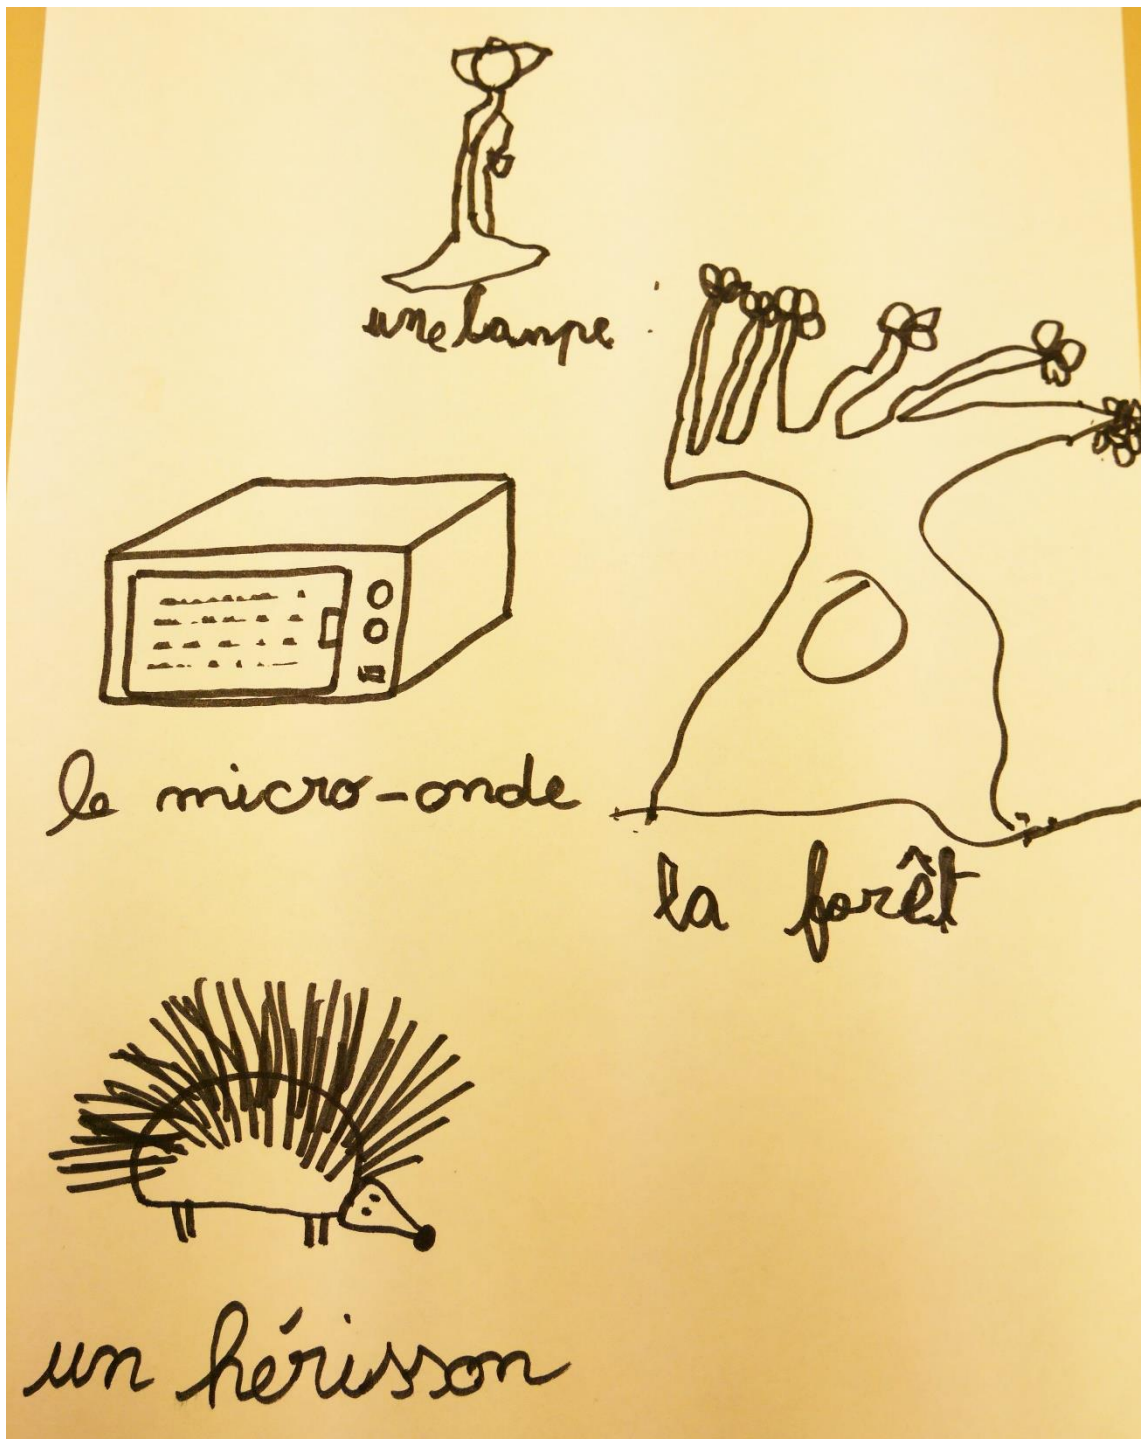 une lanpe
le micro-onde
la forêt
un hérisson